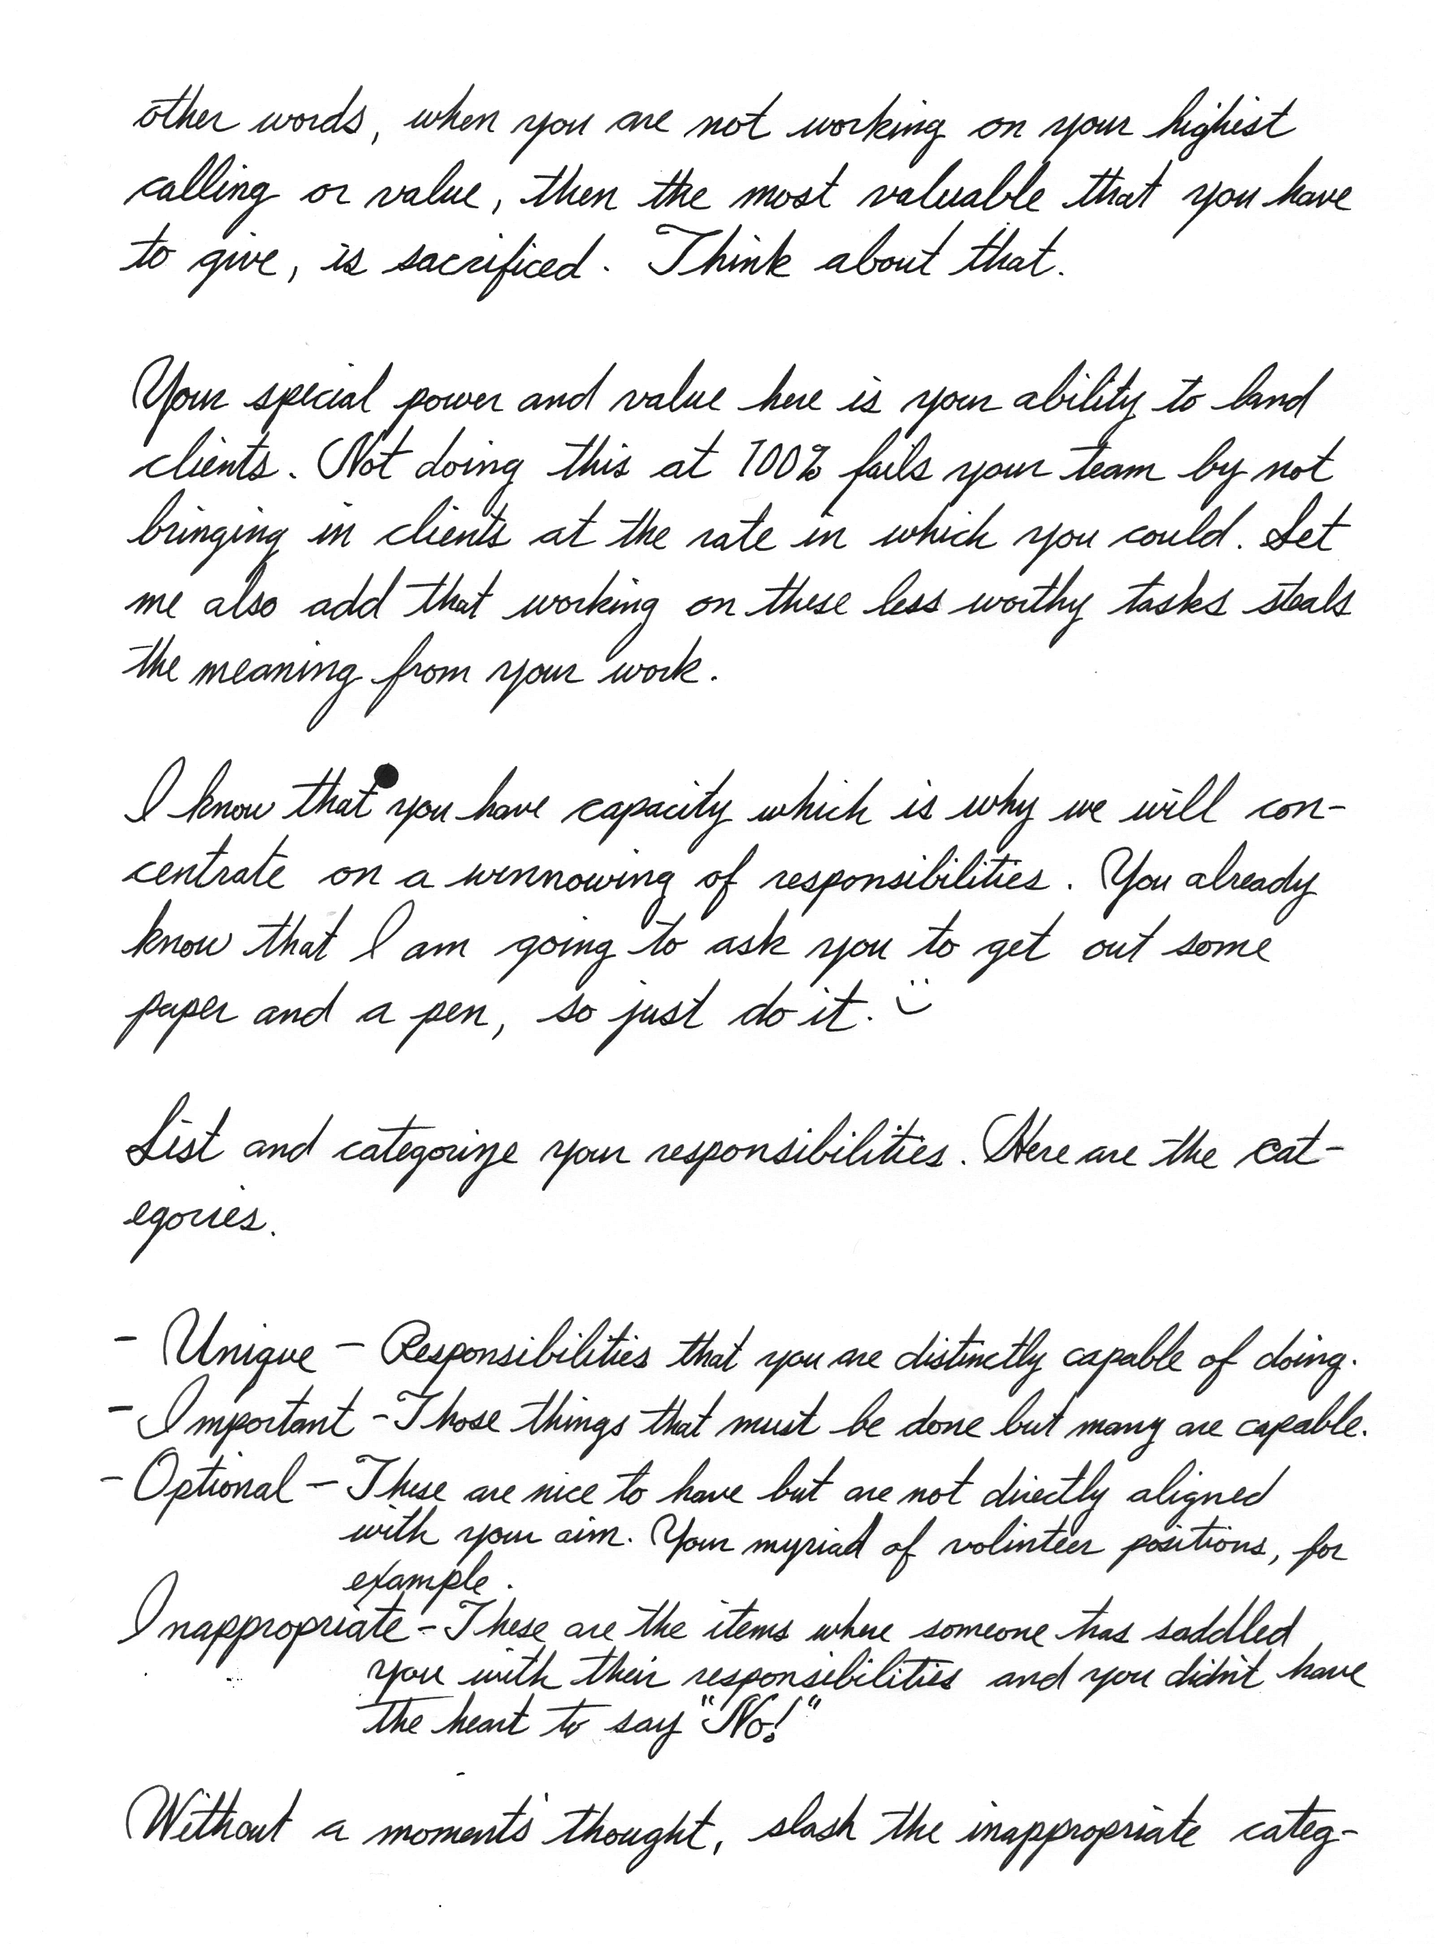 other words, when you are not working on your highest
calling or value, then the most valuable that you have
to give, is sacrificed. Think about that.
Your special power and value here is your ability to land
clients. Not doing this at 100% fails your team by not
bringing in clients at the rate in which you could. Let
me also add that working on these less worthy tasks steals
the meaning from your work.
I know that you have capacity which is why we will con-
centrate on a winnowing of responsibilities. You already
know that I am going to ask you to get out some
paper and a pen, so just do it. :)
List and categorize your responsibilities. Here are the cat-
egories.
- Unique - Responsibilities that you are distinctly capable of doing.
- Important - Those things that must be done but many are capable.
- Optional - These are nice to have but are not directly aligned
with your aim. Your myriad of volinteer positions, for
example.
Inappropriate - These are the items where someone has saddled
you with their responsibilities and you didn't have
the heart to say "No!"
Without a moment's thought, slash the inappropriate categ-